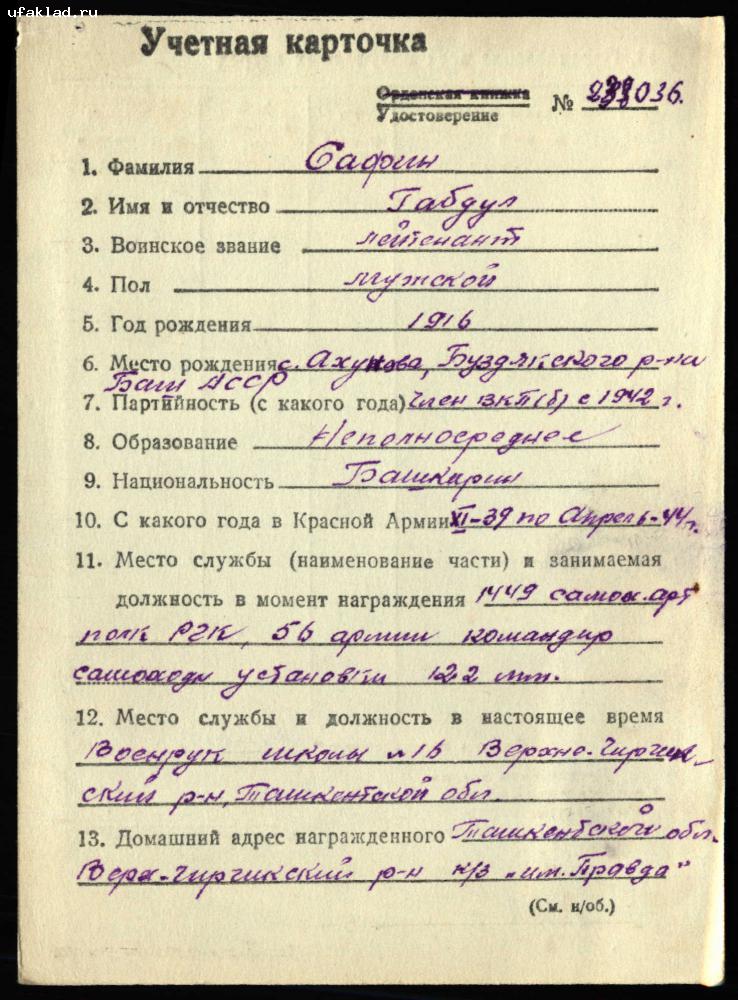 ufaklad.ru
Учетная карточка
Орденская книжка
Удостоверение № 036.
1. Фамилия Сафин
2. Имя и отчество Габдул
3. Воинское звание лейтенант
4. Пол мужской
5. Год рождения 1916
6. Место рождения с. Ахуново, Буздякского р-на
Баш АССР
7. Партийность (с какого года) Член ВКП(б) с 1942 г.
8. Образование Неполносреднее
9. Национальность Башкирин
10. С какого года в Красной Армии XI-39 по Апрель-44 г.
11. Место службы (наименование части) и занимаемая
должность в момент награждения 1449 самох. арт
полк РГК, 56 армии командир
самоходн установки 122 мм.
12. Место службы и должность в настоящее время
Военрук школы №16 Верхне-Чирчик-
ский р-н, Ташкентской обл.
13. Домашний адрес награжденного Ташкентской обл.
Верх-Чирчикский р-н к/з „им. Правда"
(См. н/об.)